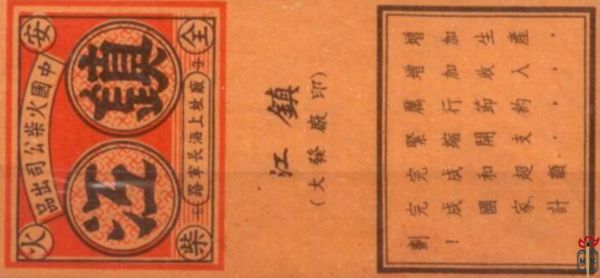 安全火柴
中國火柴公司出品
鎮江
廠址上海長寧路
鎮江
(大發廠印)
增加生產，
增加收入，
厲行節約，
緊縮開支，
完成和超額
完成國家計
劃！